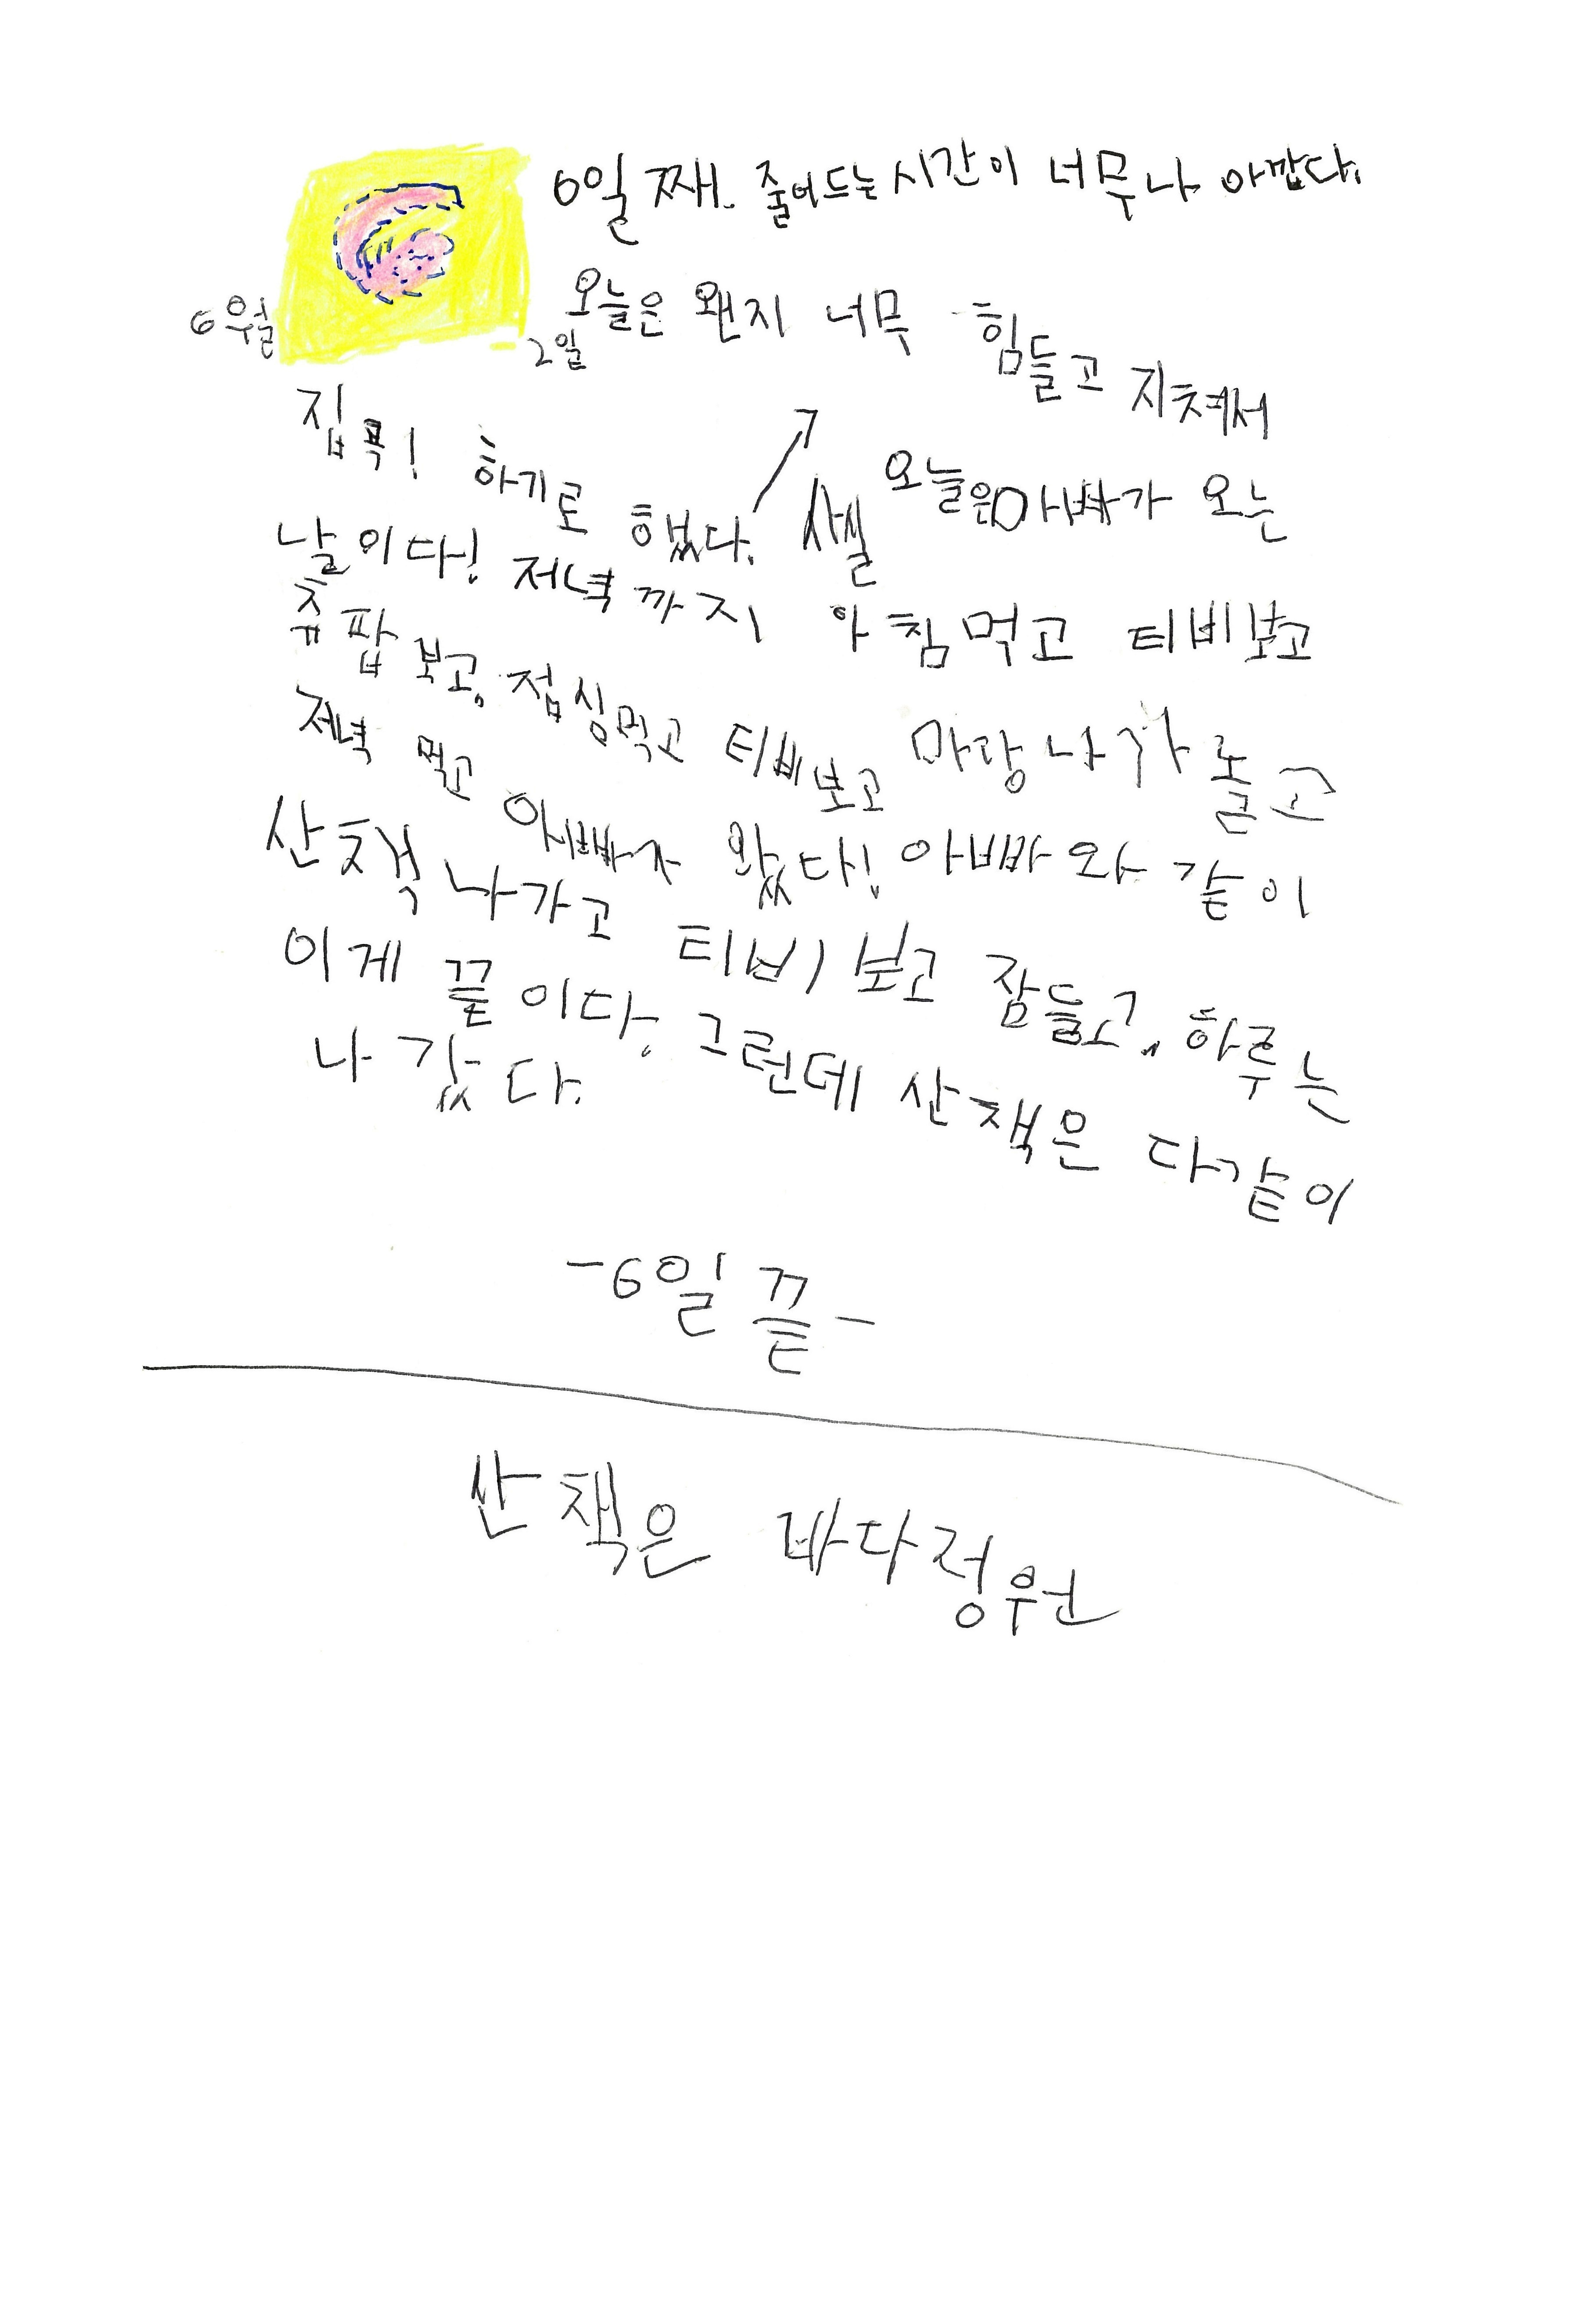 6일째. 줄어드는 시간이 너무나 아깝다.
6월 2일
오늘은 왠지 너무 힘들고 지쳐서
집콕! 하기로 했다. 사실 오늘은 아빠가 오는
날이다! 저녁까지 아침먹고 티비보고
쥬팝 보고, 점심먹고 티비보고 마당 나가 놀고
저녁 먹고 아빠가 왔다! 아빠와 같이
산책 나가고 티비 보고 잠들고, 하루는
이게 끝이다. 그런데 산책은 다같이
나갔다.
-6일 끝-
산책은 바다정원